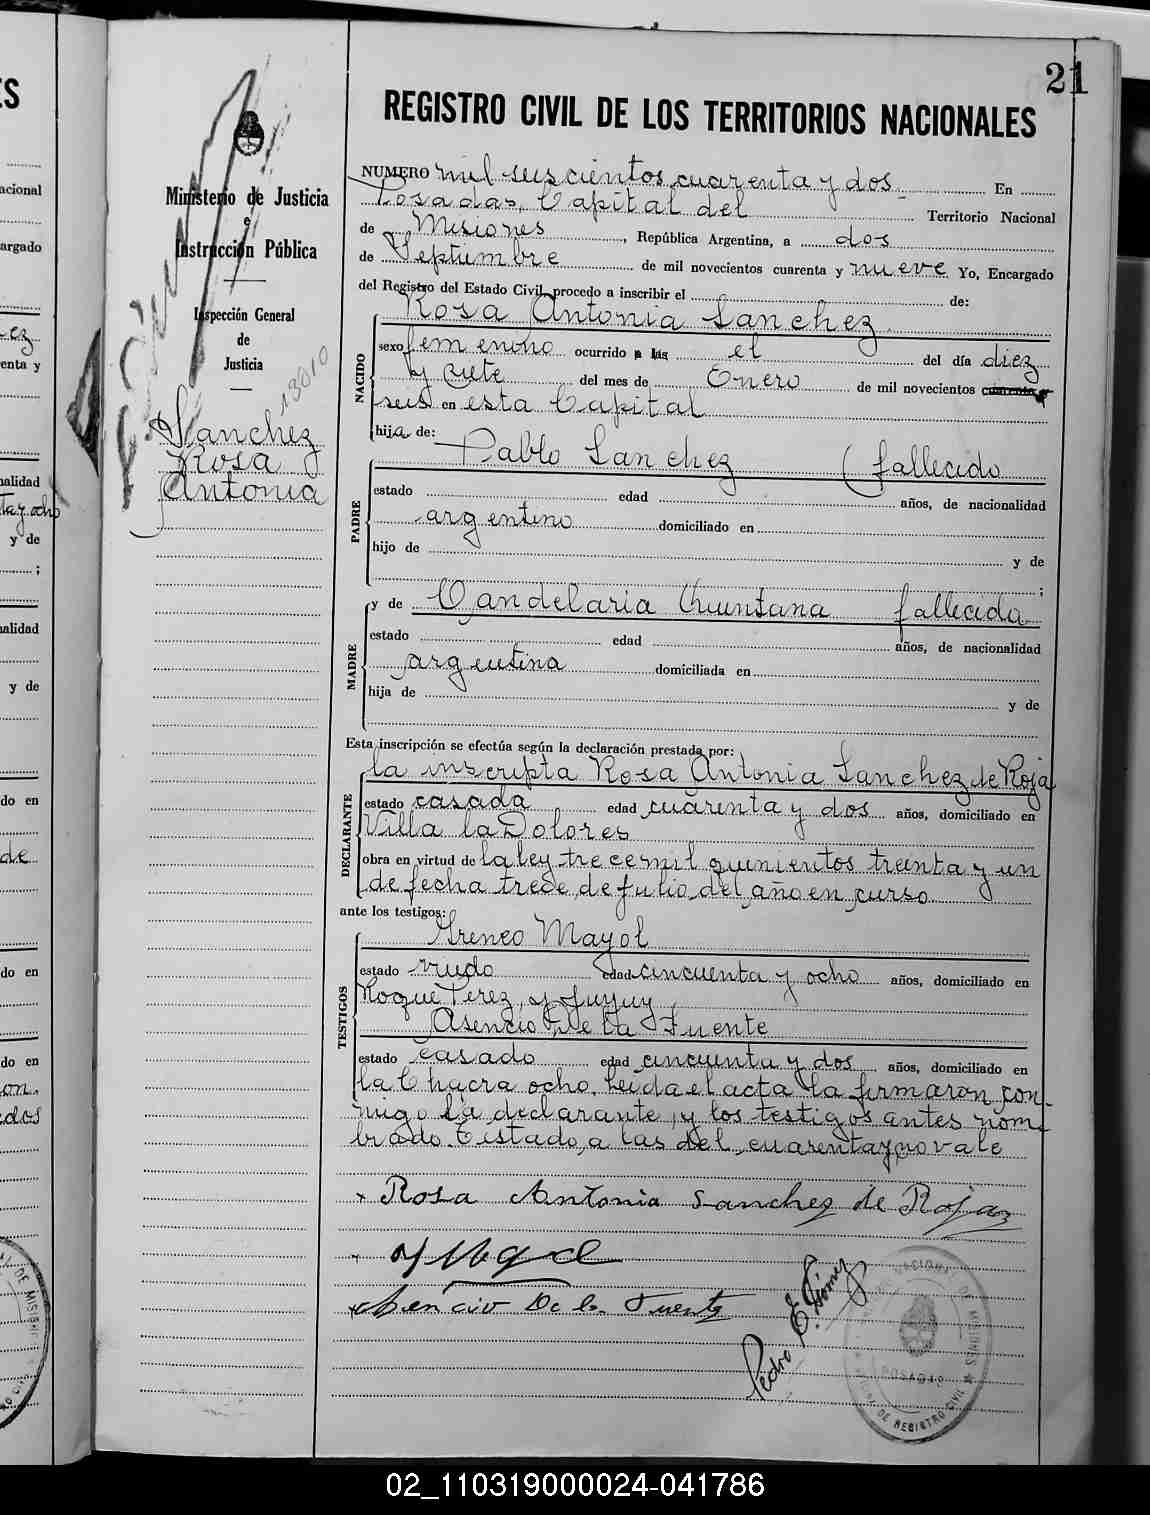 21
REGISTRO CIVIL DE LOS TERRITORIOS NACIONALES
Ministerio de Justicia
e
Instrucción Pública
Inspección General
de
Justicia
13010
Sanchez
Rosa
Antonia
NUMERO mil seis cientos cuarenta y dos En
Posadas, Capital del Territorio Nacional
de Misiones, República Argentina, a dos
de Septiembre de mil novecientos cuarenta y nueve Yo, Encargado
del Registro del Estado Civil, procedo a inscribir el de:
Rosa Antonia Sanchez
NACIDO
sexo femenino ocurrido a las el del día diez
y siete del mes de Enero de mil novecientos cuarenta y
seis en esta Capital
hija de:
Pablo Sanchez (fallecido
PADRE
estado edad años, de nacionalidad
argentino domiciliado en
hijo de y de
;
y de Candelaria Quintana fallecida
MADRE
estado edad años, de nacionalidad
argentina domiciliada en
hija de y de
Esta inscripción se efectúa según la declaración prestada por:
la inscripta Rosa Antonia Sanchez de Roja
DECLARANTE
estado casada edad cuarenta y dos años, domiciliado en
Villa la Dolores
obra en virtud de la ley trece mil quinientos treinta y un
de fecha trece de julio del año en curso
ante los testigos:
Ireneo Mayol
TESTIGOS
estado viudo edad cincuenta y ocho años, domiciliado en
Roque Perez y Jujuy
Asencio De la Fuente
estado casado edad cincuenta y dos años, domiciliado en
la Chacra ocho. Leida el acta la firmaron con-
migo la declarante y los testigos antes nom-
brado. Testado, a las del, cuarenta y no vale
x Rosa Antonia Sanchez de Rojas
Asencio De la Fuente
Pedro E. Gómez
POSADAS
REGISTRO CIVIL
ES
acional
argado
ez
enta y
nalidad
ta y ocho
y de
;
nalidad
y de
do en
de
do en
do en
on.
dos
DE MISIONES
02_110319000024-041786